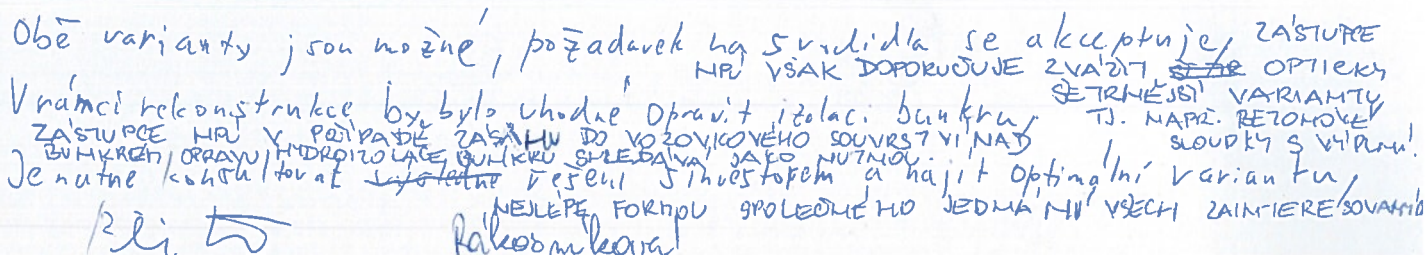 Obě varianty jsou možné, požadavek na svodidla se akceptuje, ZÁSTUPCE
NPÚ VŠAK DOPORUČUJE ZVÁŽIT OPTICKY
ŠETRNĚJŠÍ VARIANTU
V rámci rekonstrukce by bylo vhodné opravit izolaci bunkru, TJ. NAPŘ. BETONOVÉ
ZÁSTUPCE NPÚ V PŘÍPADĚ ZÁSAHU DO VOZOVKOVÉHO SOUVRSTVÍ NAD SLOUPKY S VÝPLNÍ.
BUNKREM, OPRAVU HYDROIZOLACE BUNKRU SHLEDÁVÁ JAKO NUTNOU.
Je nutné konsultovat řešení s investorem a najít optimální variantu,
NEJLÉPE FORMOU SPOLEČNÉHO JEDNÁNÍ VŠECH ZAINTERESOVANÝCH
Rákosníková